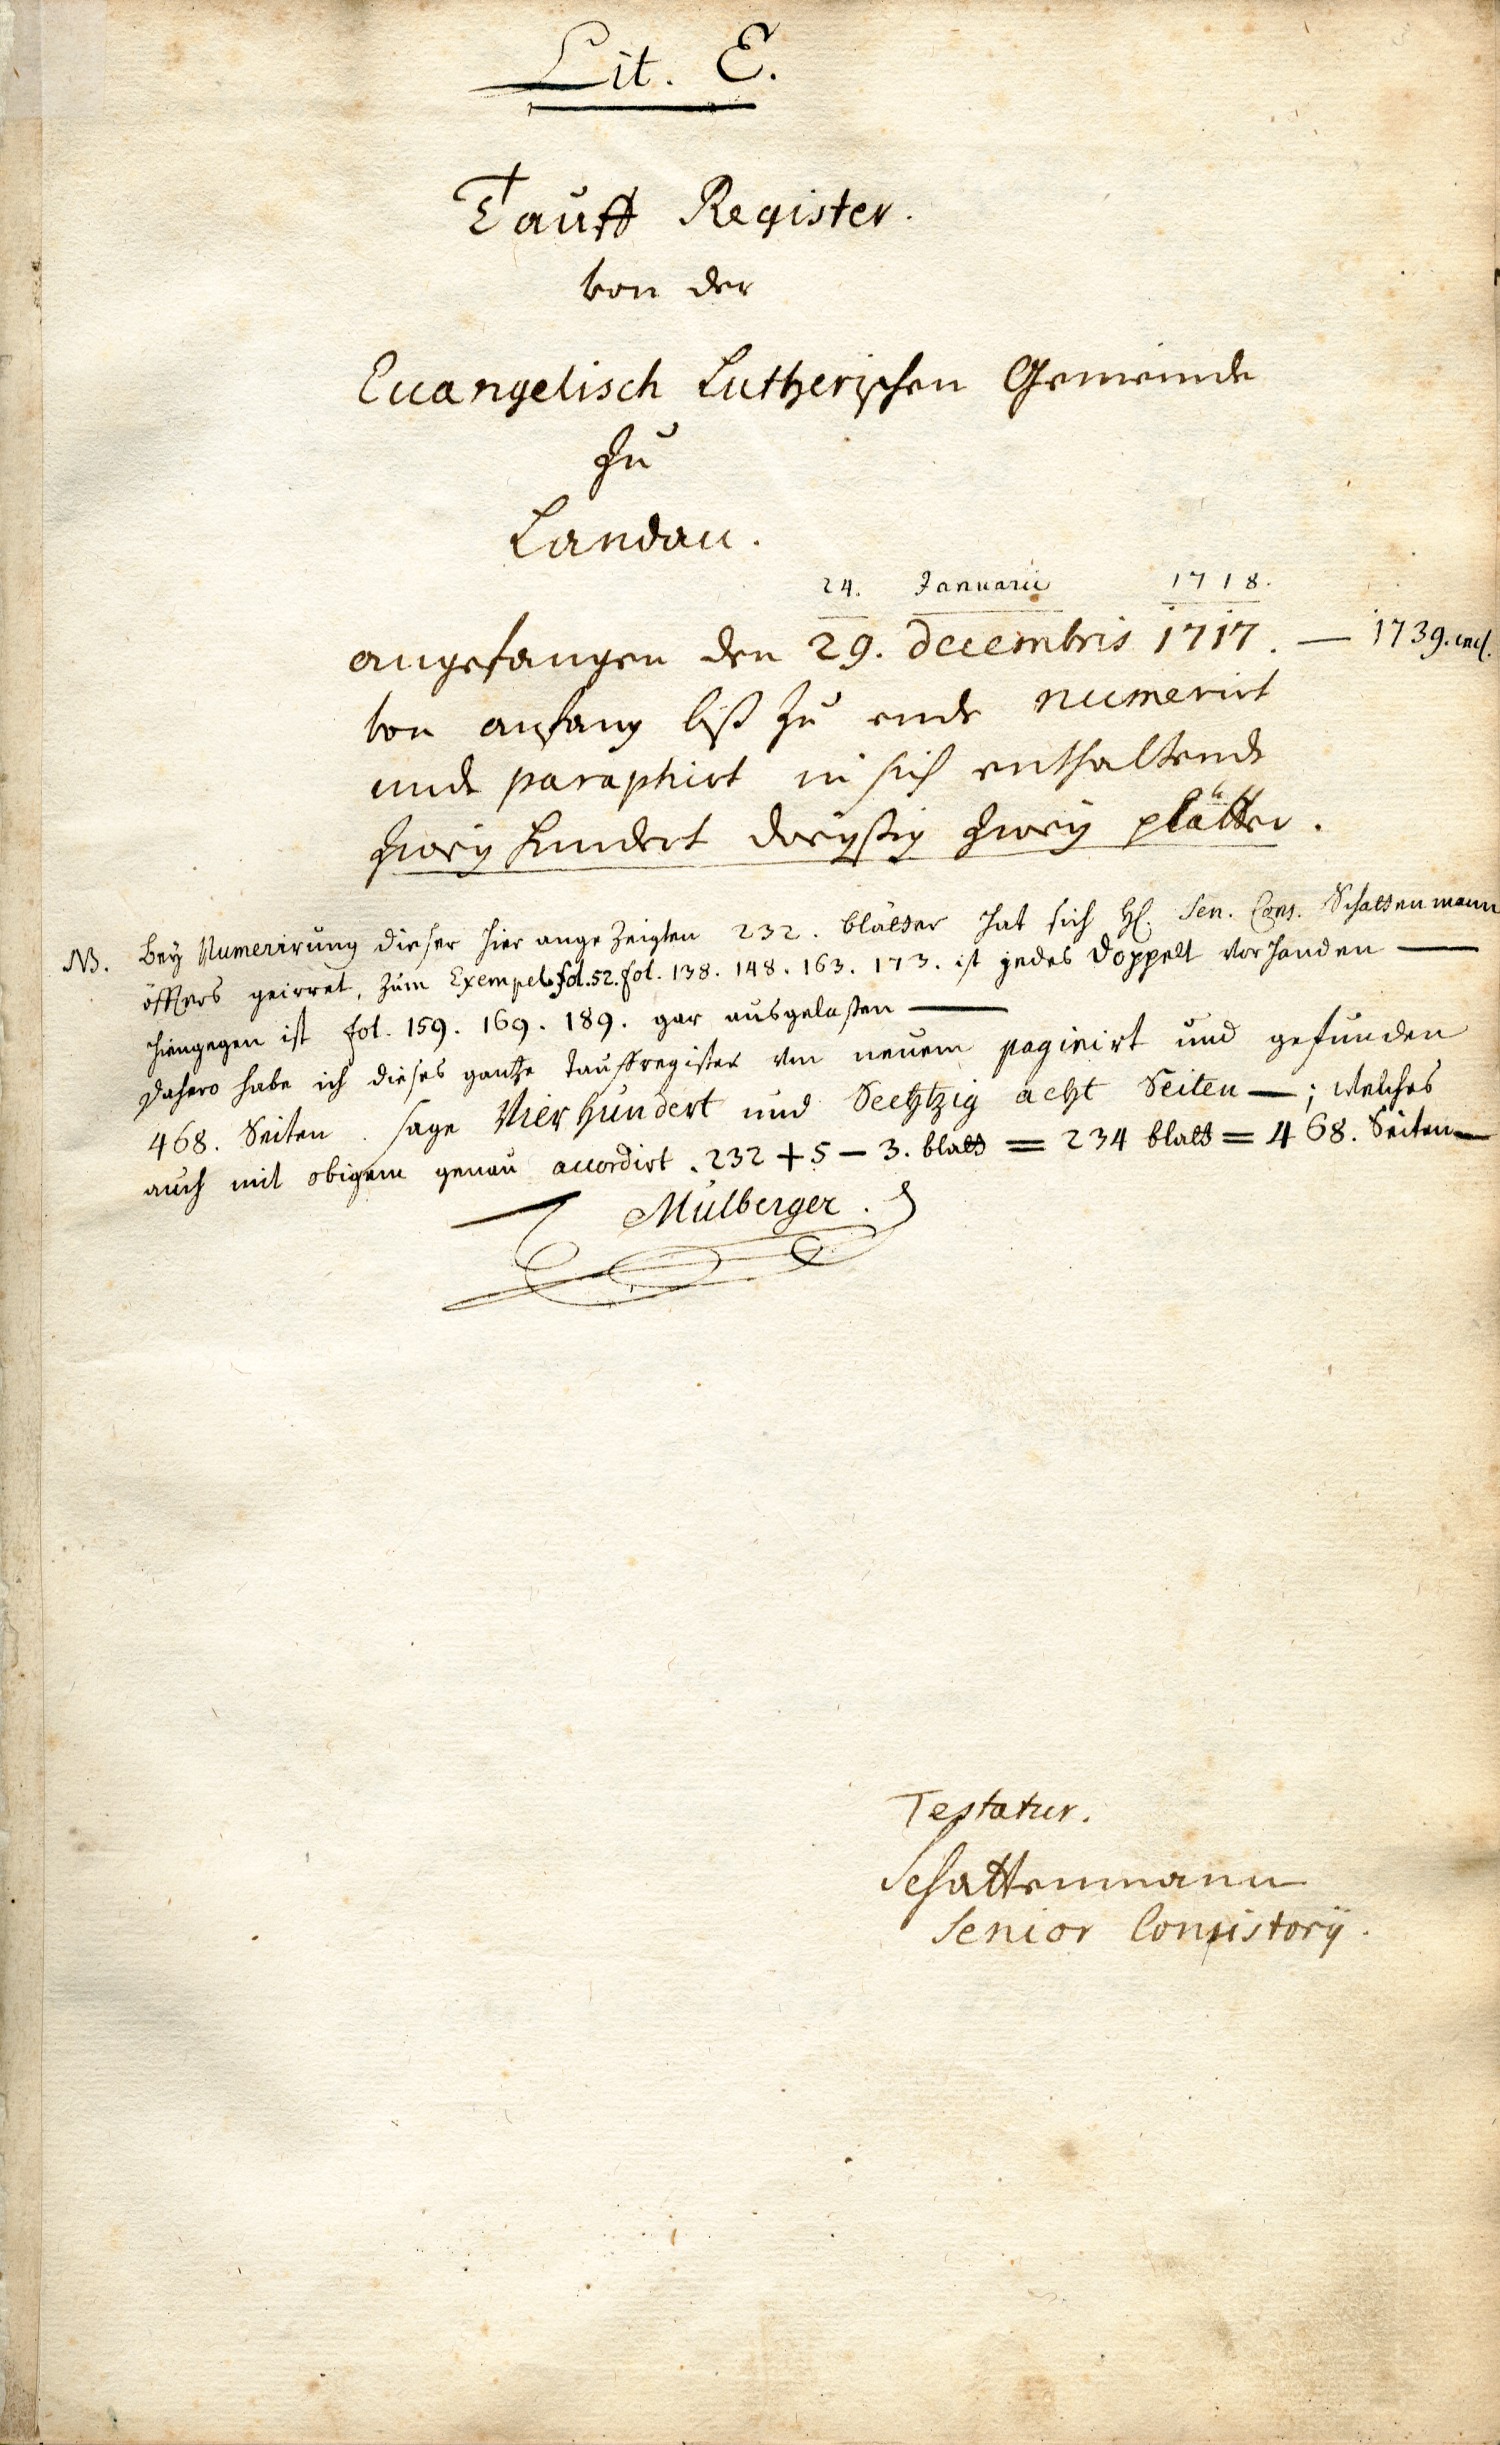 Lit. E.
Taufft Register.
von der
Euangelisch Lutherischen Gemeinde
zu
Landau.
24. Januarii 1718.
angefangen den 29. decembris 1717. — 1739. incl.
von anfang biß zu ende numerirt
und paraphirt in sich enthaltend
zwey hundert dreyßig zwey plätter.
NB. Bey Numerirung dieser hier angezeigten 232. blätter hat sich H. Sen. Cons. Schattenmann
öffters geirret, zum Exempel fol. 52. fol. 138. 148. 163. 173. ist jedes Doppelt vorhanden —
hiengegen ist fol. 159. 169. 189. gar ausgelaßen —
Dahero habe ich dieses gantze Tauffregister von neuem paginirt und gefunden
468. Seiten. sage Vierhundert und Sechtzig acht Seiten — ; welches
auch mit obigem genau accordirt. 232 + 5 — 3. blatt = 234 blatt = 468. Seiten —
Mülberger.
Testatur.
Schattenmann
Senior Consistorÿ.